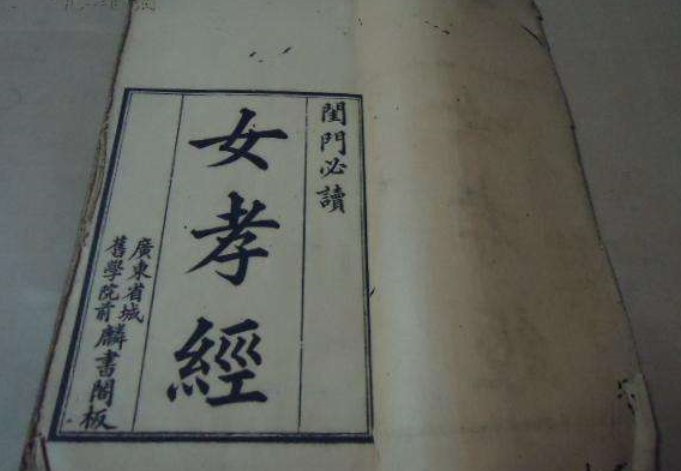 閨門必讀
女孝經
廣東省城
舊學院前麟書閣板